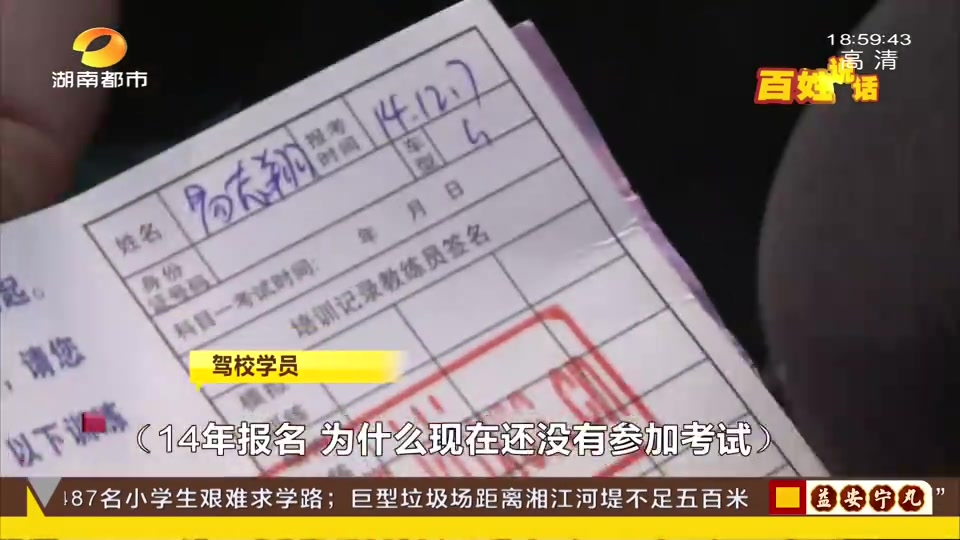 湖南都市
18:59:43
高清
百姓说话
姓名
报考时间
14.12.7
车型
身份证号码
年 月 日
科目一考试时间:
培训记录教练员签名
起。
，请您
以下训练
驾校学员
（14年报名 为什么现在还没有参加考试）
487名小学生艰难求学路；巨型垃圾场距离湘江河堤不足五百米
益安宁丸
”